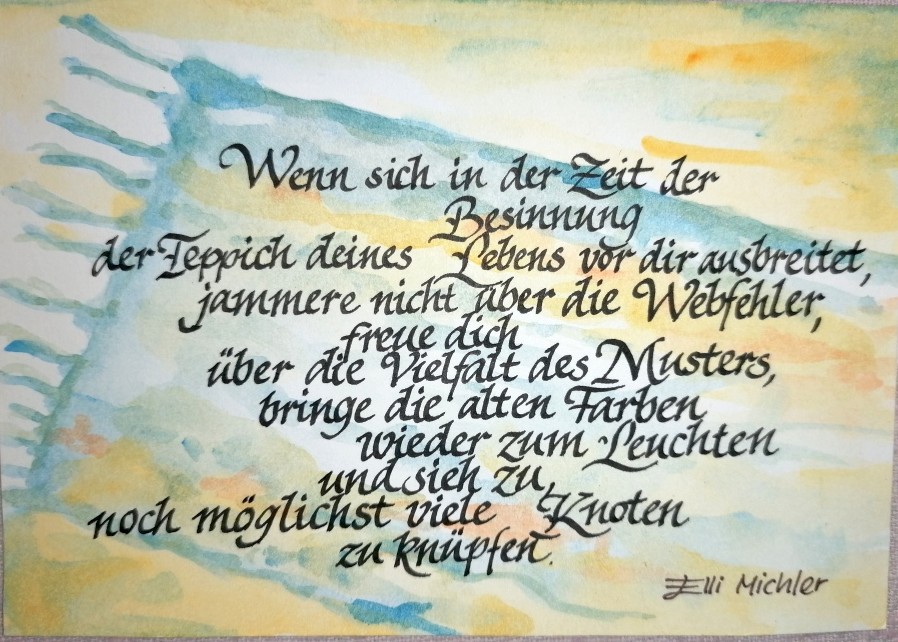 Wenn sich in der Zeit der
Besinnung
der Teppich deines Lebens vor dir ausbreitet,
jammere nicht über die Webfehler,
freue dich
über die Vielfalt des Musters,
bringe die alten Farben
wieder zum Leuchten
und sieh zu,
noch möglichst viele Knoten
zu knüpfen.
Elli Michler